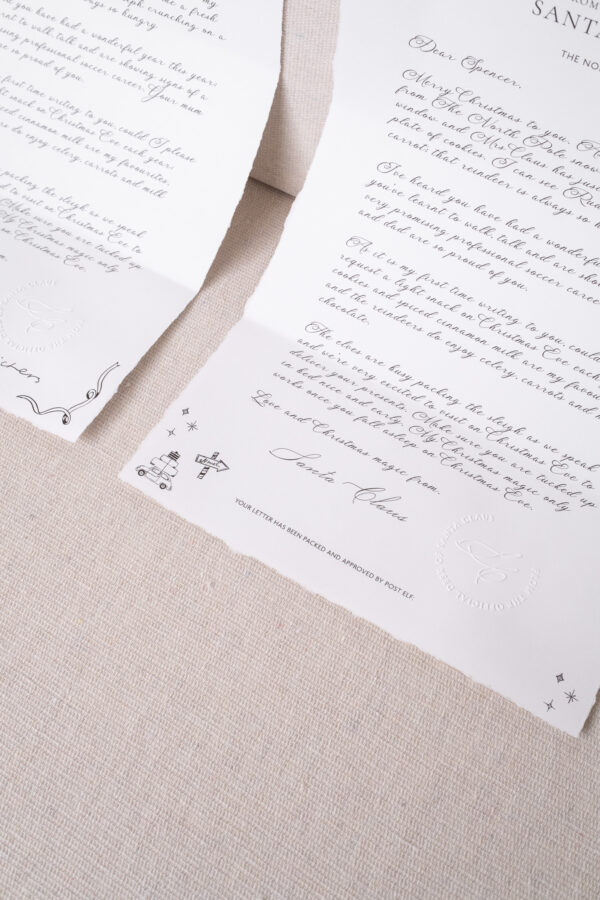 me a fresh
crunching on a
so hungry.
you have had a wonderful year this year:
to walk, talk and are showing signs of a
professional soccer career. Your mum
are so proud of you.
first time writing to you, could I please
light snack on Christmas Eve each year:
and cinnamon milk are my favourites
do enjoy celery, carrots and milk
packing the sleigh as we speak
to visit on Christmas Eve to
Make sure you are tucked up
Christmas magic only
Christmas Eve.
SANTA
THE NO
Dear Spencer,
Merry Christmas to you.
from The North Pole snow
window and Mrs Claus has jus
plate of cookies. I can see Ru
carrot: that reindeer is always so h
I've heard you have had a wonderful
you've learnt to walk, talk and are sho
very promising professional soccer caree
and dad are so proud of you.
As it is my first time writing to you, could
request a light snack on Christmas Eve each
cookies and spiced cinnamon milk are my favou
and the reindeers do enjoy celery, carrots and m
chocolate.
The elves are busy packing the sleigh as we speak
and we're very excited to visit on Christmas Eve to
deliver your presents. Make sure you are tucked up
in bed nice and early. My Christmas magic only
works once you fall asleep on Christmas Eve.
Love and Christmas magic from,
Santa Claus
YOUR LETTER HAS BEEN PACKED AND APPROVED BY POST ELF.